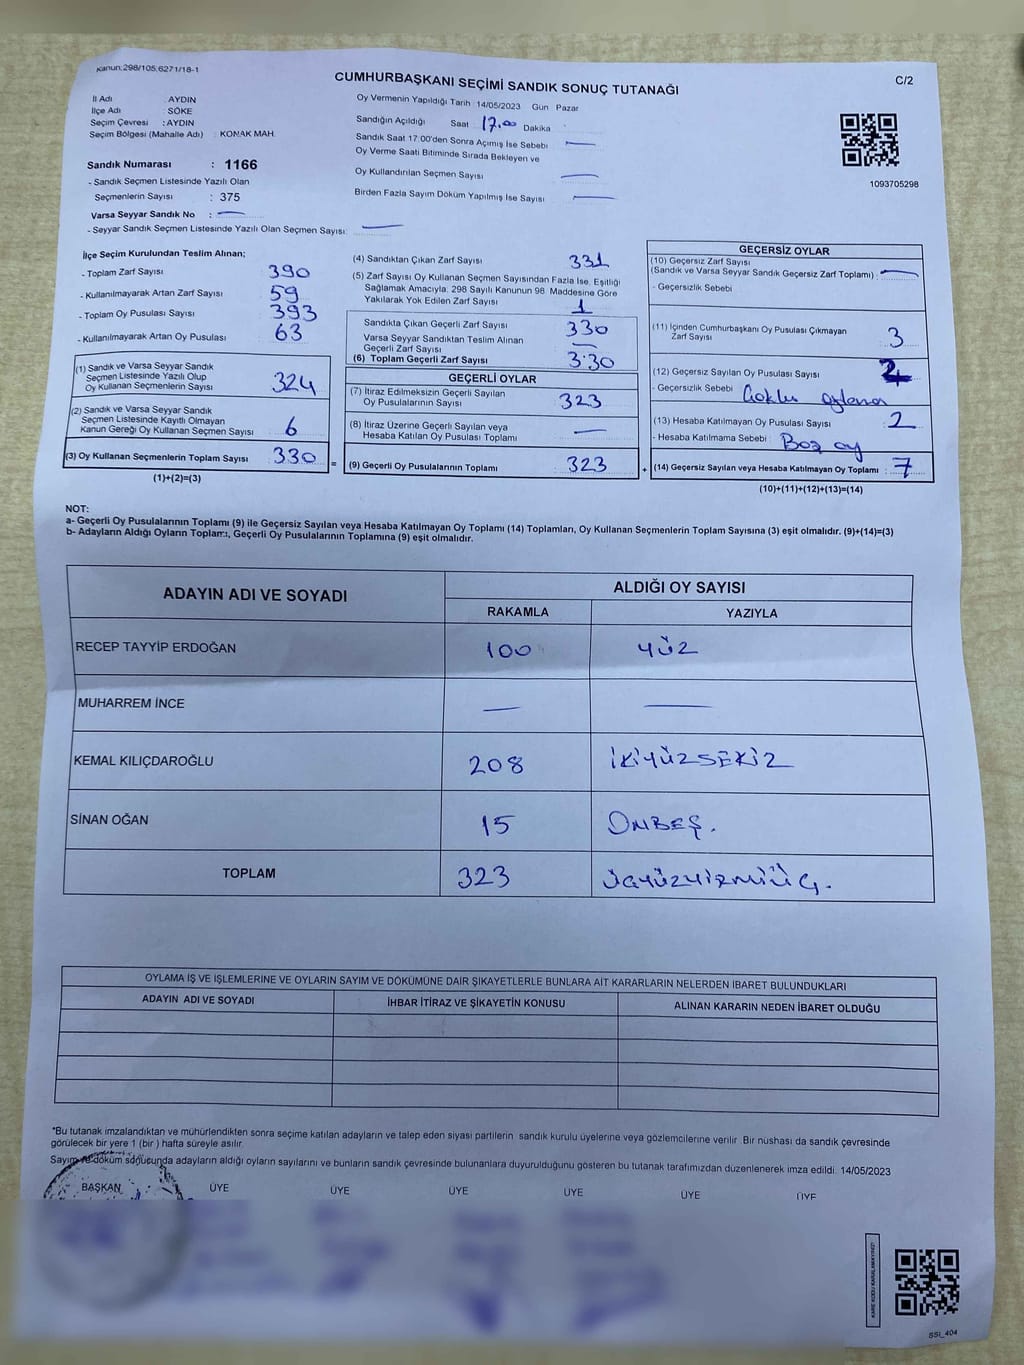 Kanun:298/105,6271/18-1
CUMHURBAŞKANI SEÇİMİ SANDIK SONUÇ TUTANAĞI
C/2
İl Adı : AYDIN
İlçe Adı : SÖKE
Seçim Çevresi : AYDIN
Seçim Bölgesi (Mahalle Adı) : KONAK MAH.
Sandık Numarası : 1166
- Sandık Seçmen Listesinde Yazılı Olan
Seçmenlerin Sayısı : 375
Varsa Seyyar Sandık No :
- Seyyar Sandık Seçmen Listesinde Yazılı Olan Seçmen Sayısı:
Oy Vermenin Yapıldığı Tarih 14/05/2023 Gün Pazar
Sandığın Açıldığı Saat 17.00 Dakika
Sandık Saat 17:00'den Sonra Açımış İse Sebebi
Oy Verme Saati Bitiminde Sırada Bekleyen ve
Oy Kullandırılan Seçmen Sayısı
Birden Fazla Sayım Döküm Yapılmış İse Sayısı
1093705298
İlçe Seçim Kurulundan Teslim Alınan;
- Toplam Zarf Sayısı 390
- Kullanılmayarak Artan Zarf Sayısı 59
- Toplam Oy Pusulası Sayısı 393
- Kullanılmayarak Artan Oy Pusulası 63
(1) Sandık ve Varsa Seyyar Sandık
Seçmen Listesinde Yazılı Olup
Oy Kullanan Seçmenlerin Sayısı 324
(2) Sandık ve Varsa Seyyar Sandık
Seçmen Listesinde Kayıtlı Olmayan
Kanun Gereği Oy Kullanan Seçmen Sayısı 6
(3) Oy Kullanan Seçmenlerin Toplam Sayısı 330 =
(1)+(2)=(3)
(4) Sandıktan Çıkan Zarf Sayısı 331
(5) Zarf Sayısı Oy Kullanan Seçmen Sayısından Fazla İse, Eşitliği
Sağlamak Amacıyla; 298 Sayılı Kanunun 98. Maddesine Göre
Yakılarak Yok Edilen Zarf Sayısı 1
Sandıkta Çıkan Geçerli Zarf Sayısı 330
Varsa Seyyar Sandıktan Teslim Alınan
Geçerli Zarf Sayısı
(6) Toplam Geçerli Zarf Sayısı 330
GEÇERLİ OYLAR
(7) İtiraz Edilmeksizin Geçerli Sayılan
Oy Pusulalarının Sayısı 323
(8) İtiraz Üzerine Geçerli Sayılan veya
Hesaba Katılan Oy Pusulası Toplamı
(9) Geçerli Oy Pusulalarının Toplamı 323 +
GEÇERSİZ OYLAR
(10) Geçersiz Zarf Sayısı
(Sandık ve Varsa Seyyar Sandık Geçersiz Zarf Toplamı) :
- Geçersizlik Sebebi
(11) İçinden Cumhurbaşkanı Oy Pusulası Çıkmayan
Zarf Sayısı 3
(12) Geçersiz Sayılan Oy Pusulası Sayısı
- Geçersizlik Sebebi
(13) Hesaba Katılmayan Oy Pusulası Sayısı : 2
- Hesaba Katılmama Sebebi Boz oy
(14) Geçersiz Sayılan veya Hesaba Katılmayan Oy Toplamı : 7
(10)+(11)+(12)+(13)=(14)
NOT:
a- Geçerli Oy Pusulalarının Toplamı (9) ile Geçersiz Sayılan veya Hesaba Katılmayan Oy Toplamı (14) Toplamları, Oy Kullanan Seçmenlerin Toplam Sayısına (3) eşit olmalıdır. (9)+(14)=(3)
b- Adayların Aldığı Oyların Toplamı, Geçerli Oy Pusulalarının Toplamına (9) eşit olmalıdır.
ADAYIN ADI VE SOYADI
ALDIĞI OY SAYISI
RAKAMLA YAZIYLA
RECEP TAYYİP ERDOĞAN 100 YÜZ
MUHARREM İNCE
KEMAL KILIÇDAROĞLU 208 İKİYÜZSEKİZ
SİNAN OĞAN 15 ONBEŞ.
TOPLAM 323 ÜÇYÜZYİRMİÜÇ.
OYLAMA İŞ VE İŞLEMLERİNE VE OYLARIN SAYIM VE DÖKÜMÜNE DAİR ŞİKAYETLERLE BUNLARA AİT KARARLARIN NELERDEN İBARET BULUNDUKLARI
ADAYIN ADI VE SOYADI İHBAR İTİRAZ VE ŞİKAYETİN KONUSU ALINAN KARARIN NEDEN İBARET OLDUĞU
*Bu tutanak imzalandıktan ve mühürlendikten sonra seçime katılan adayların ve talep eden siyasi partilerin sandık kurulu üyelerine veya gözlemcilerine verilir. Bir nüshası da sandık çevresinde
görülecek bir yere 1 (bir) hafta süreyle asılır.
Sayım ve döküm sonucunda adayların aldığı oyların sayılarını ve bunların sandık çevresinde bulunanlara duyurulduğunu gösteren bu tutanak tarafımızdan düzenlenerek imza edildi. 14/05/2023
BAŞKAN ÜYE ÜYE ÜYE ÜYE ÜYE ÜYE
SSİ_404